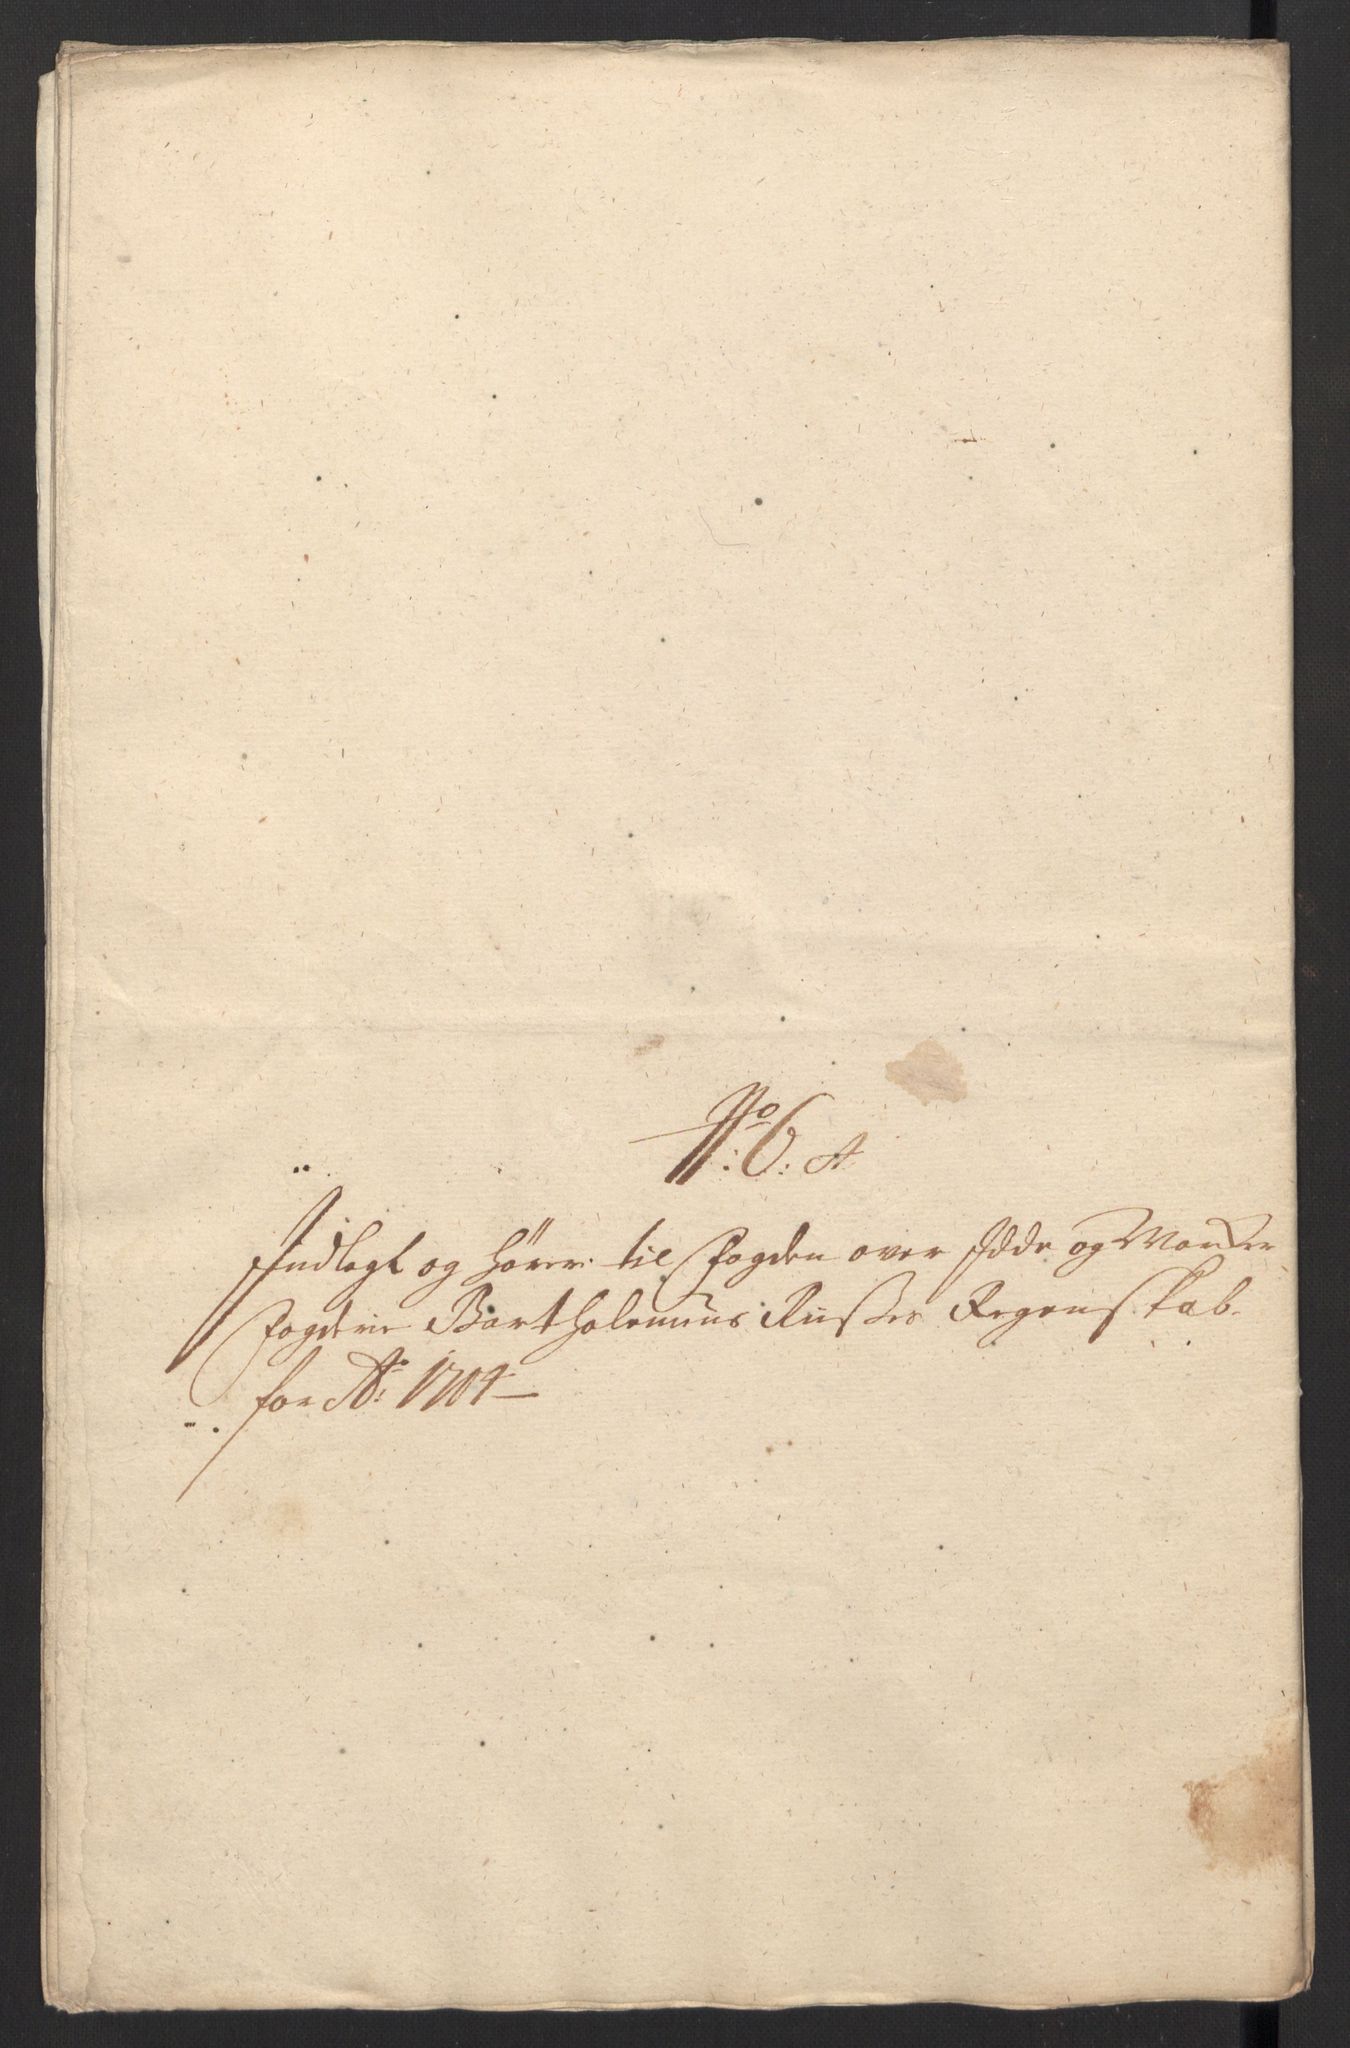 No: 6: A
Indlagt og hører til Fogden over Idde og Marker
Fogderie Bartholomeus Rusßes Regenskab
for Ao: 1704